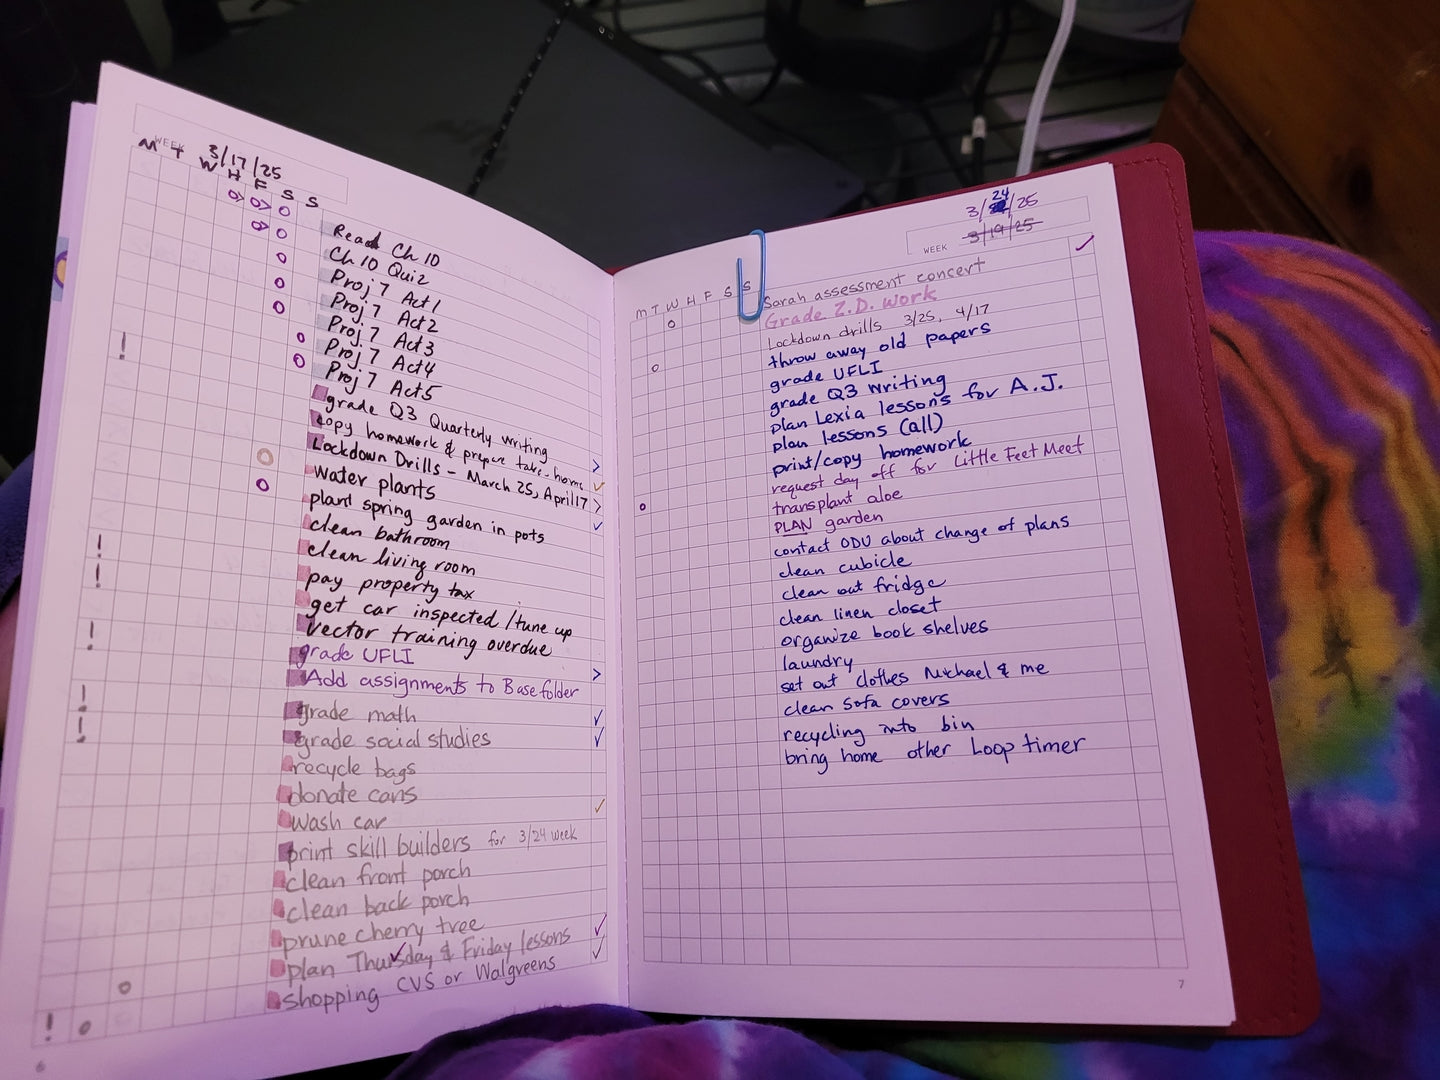 WEEK 3/17/25
M T W H F S S
Read Ch 10
Ch 10 Quiz
Proj 7 Act 1
Proj 7 Act 2
Proj 7 Act 3
Proj 7 Act 4
Proj 7 Act 5
grade Q3 Quarterly writing
copy homework & prepare take-home
Lockdown Drills - March 25, April 17
Water plants
plant spring garden in pots
clean bathroom
clean living room
pay property tax
get car inspected / tune up
vector training overdue
grade UFLI
Add assignments to Base folder
grade math
grade social studies
recycle bags
donate cans
wash car
print skill builders for 3/24 week
clean front porch
clean back porch
prune cherry tree
plan Thursday & Friday lessons
shopping CVS or Walgreens
6
3/24/25
WEEK 3/19/25
M T W H F S S
Sarah assessment concert
Grade Z.D. Work
Lockdown drills 3/25, 4/17
throw away old papers
grade UFLI
grade Q3 Writing
plan Lexia lessons for A.J.
plan lessons (all)
print/copy homework
request day off for Little Feet Meet
transplant aloe
PLAN garden
contact ODU about change of plans
clean cubicle
clean out fridge
clean linen closet
organize book shelves
laundry
set out clothes Michael & me
clean sofa covers
recycling into bin
bring home other Loop timer
7